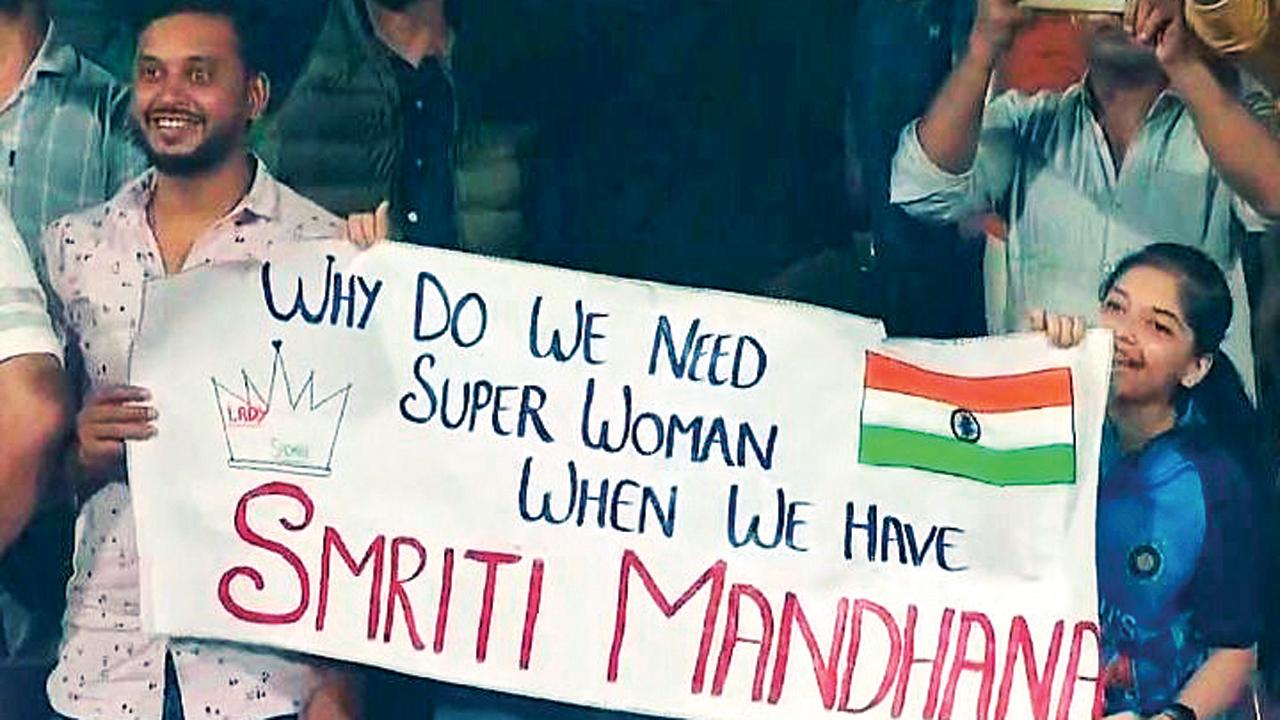 WHY DO WE NEED
SUPER WOMAN
WHEN WE HAVE
LADY
SMRITI MANDHANA